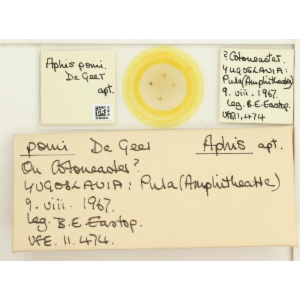 Aphis pomi.
De Geer
apt.
? Cotoneaster.
YUGOSLAVIA:
Pula (Amphitheatre)
9. viii. 1967.
Leg. B.E. Eastop.
VFE 11,474
pomi De Geer Aphis apt.
On Cotoneaster?
YUGOSLAVIA: Pula (Amphitheatre)
9. viii. 1967.
Leg. B.E. Eastop.
VFE. 11.474.